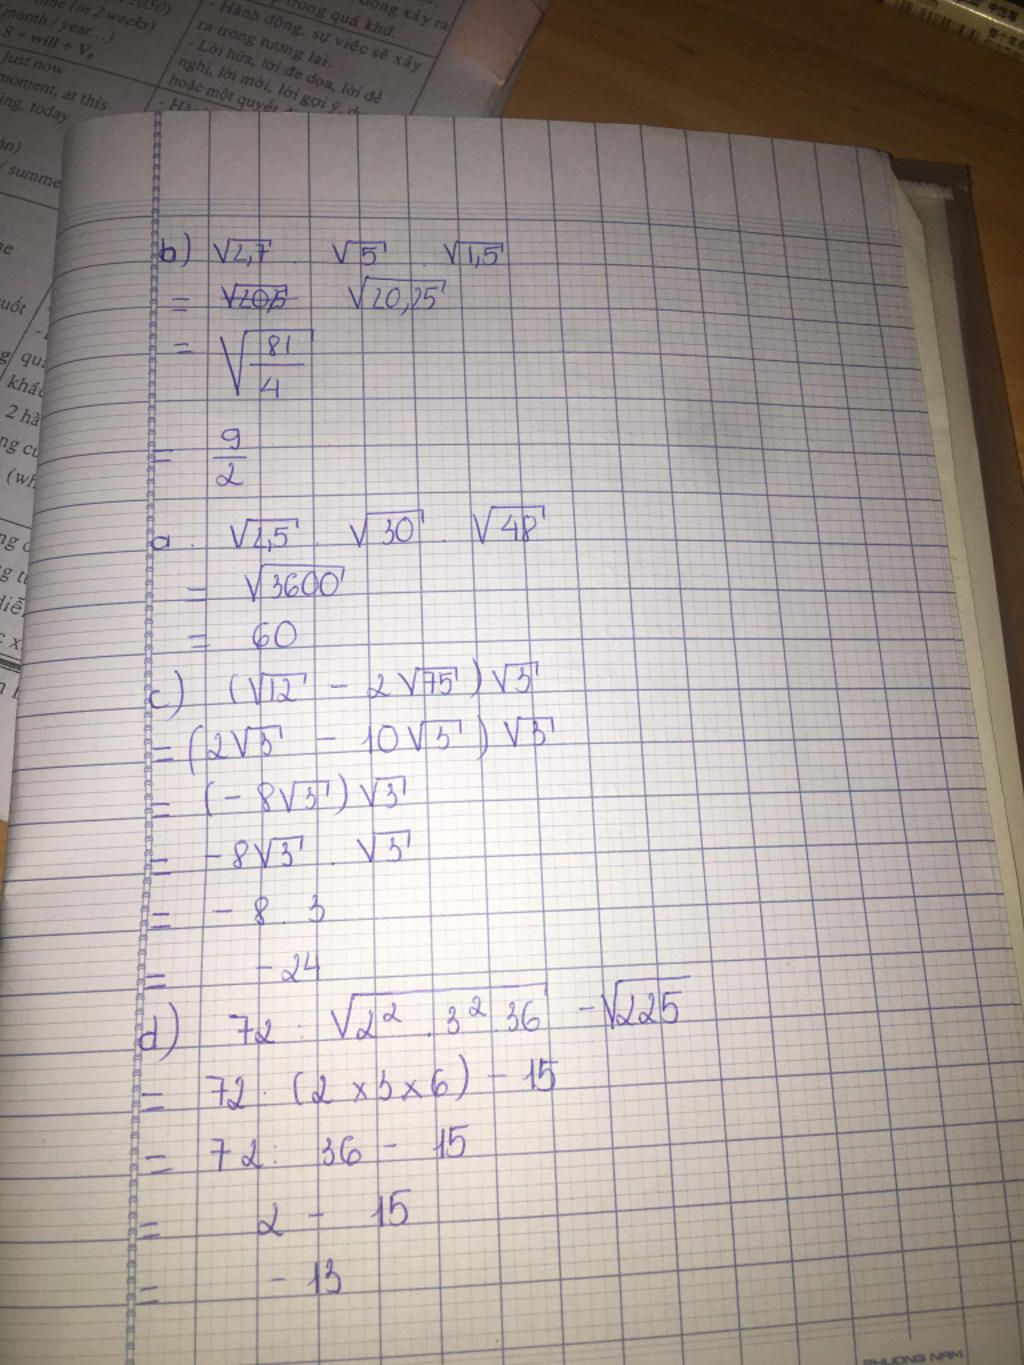 2050)
time (in 2 weeks)
month / year...)
S + will + V₀
just now
moment, at this
ing, today
/ summe
trong quá khứ.
- Hành động, sự việc sẽ xảy
ra trong tương lai.
- Lời hứa, lời đe dọa, lời đề
nghị, lời mời, lời gợi ý,
hoặc một quyết
uốt
g quá
khác
2 hà
(wh
b) √2,7 . √5 . √1,5
= √20,5 √20,25
= √81/4
= 9/2
a. √2,5 . √30 . √48
= √3600
= 60
c) (√12 - 2√75)√3
= (2√3 - 10√3)√3
= (-8√3)√3
= -8√3 . √3
= -8 . 3
= -24
d) 72 : √2² . 3² . 36 - √225
= 72 : (2 × 3 × 6) - 15
= 72 : 36 - 15
= 2 - 15
= -13
PHUONG NAM